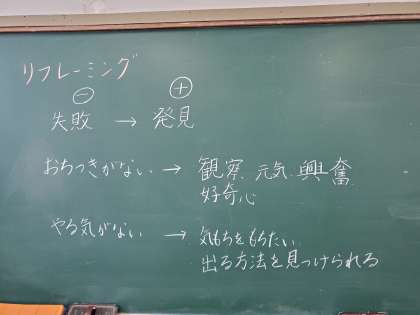 リフレーミング
⊖ ⊕
失敗 → 発見
おちつきがない → 観察 元気 興奮
好奇心
やる気がない → 気もちをもちたい
出る方法を見つけられる